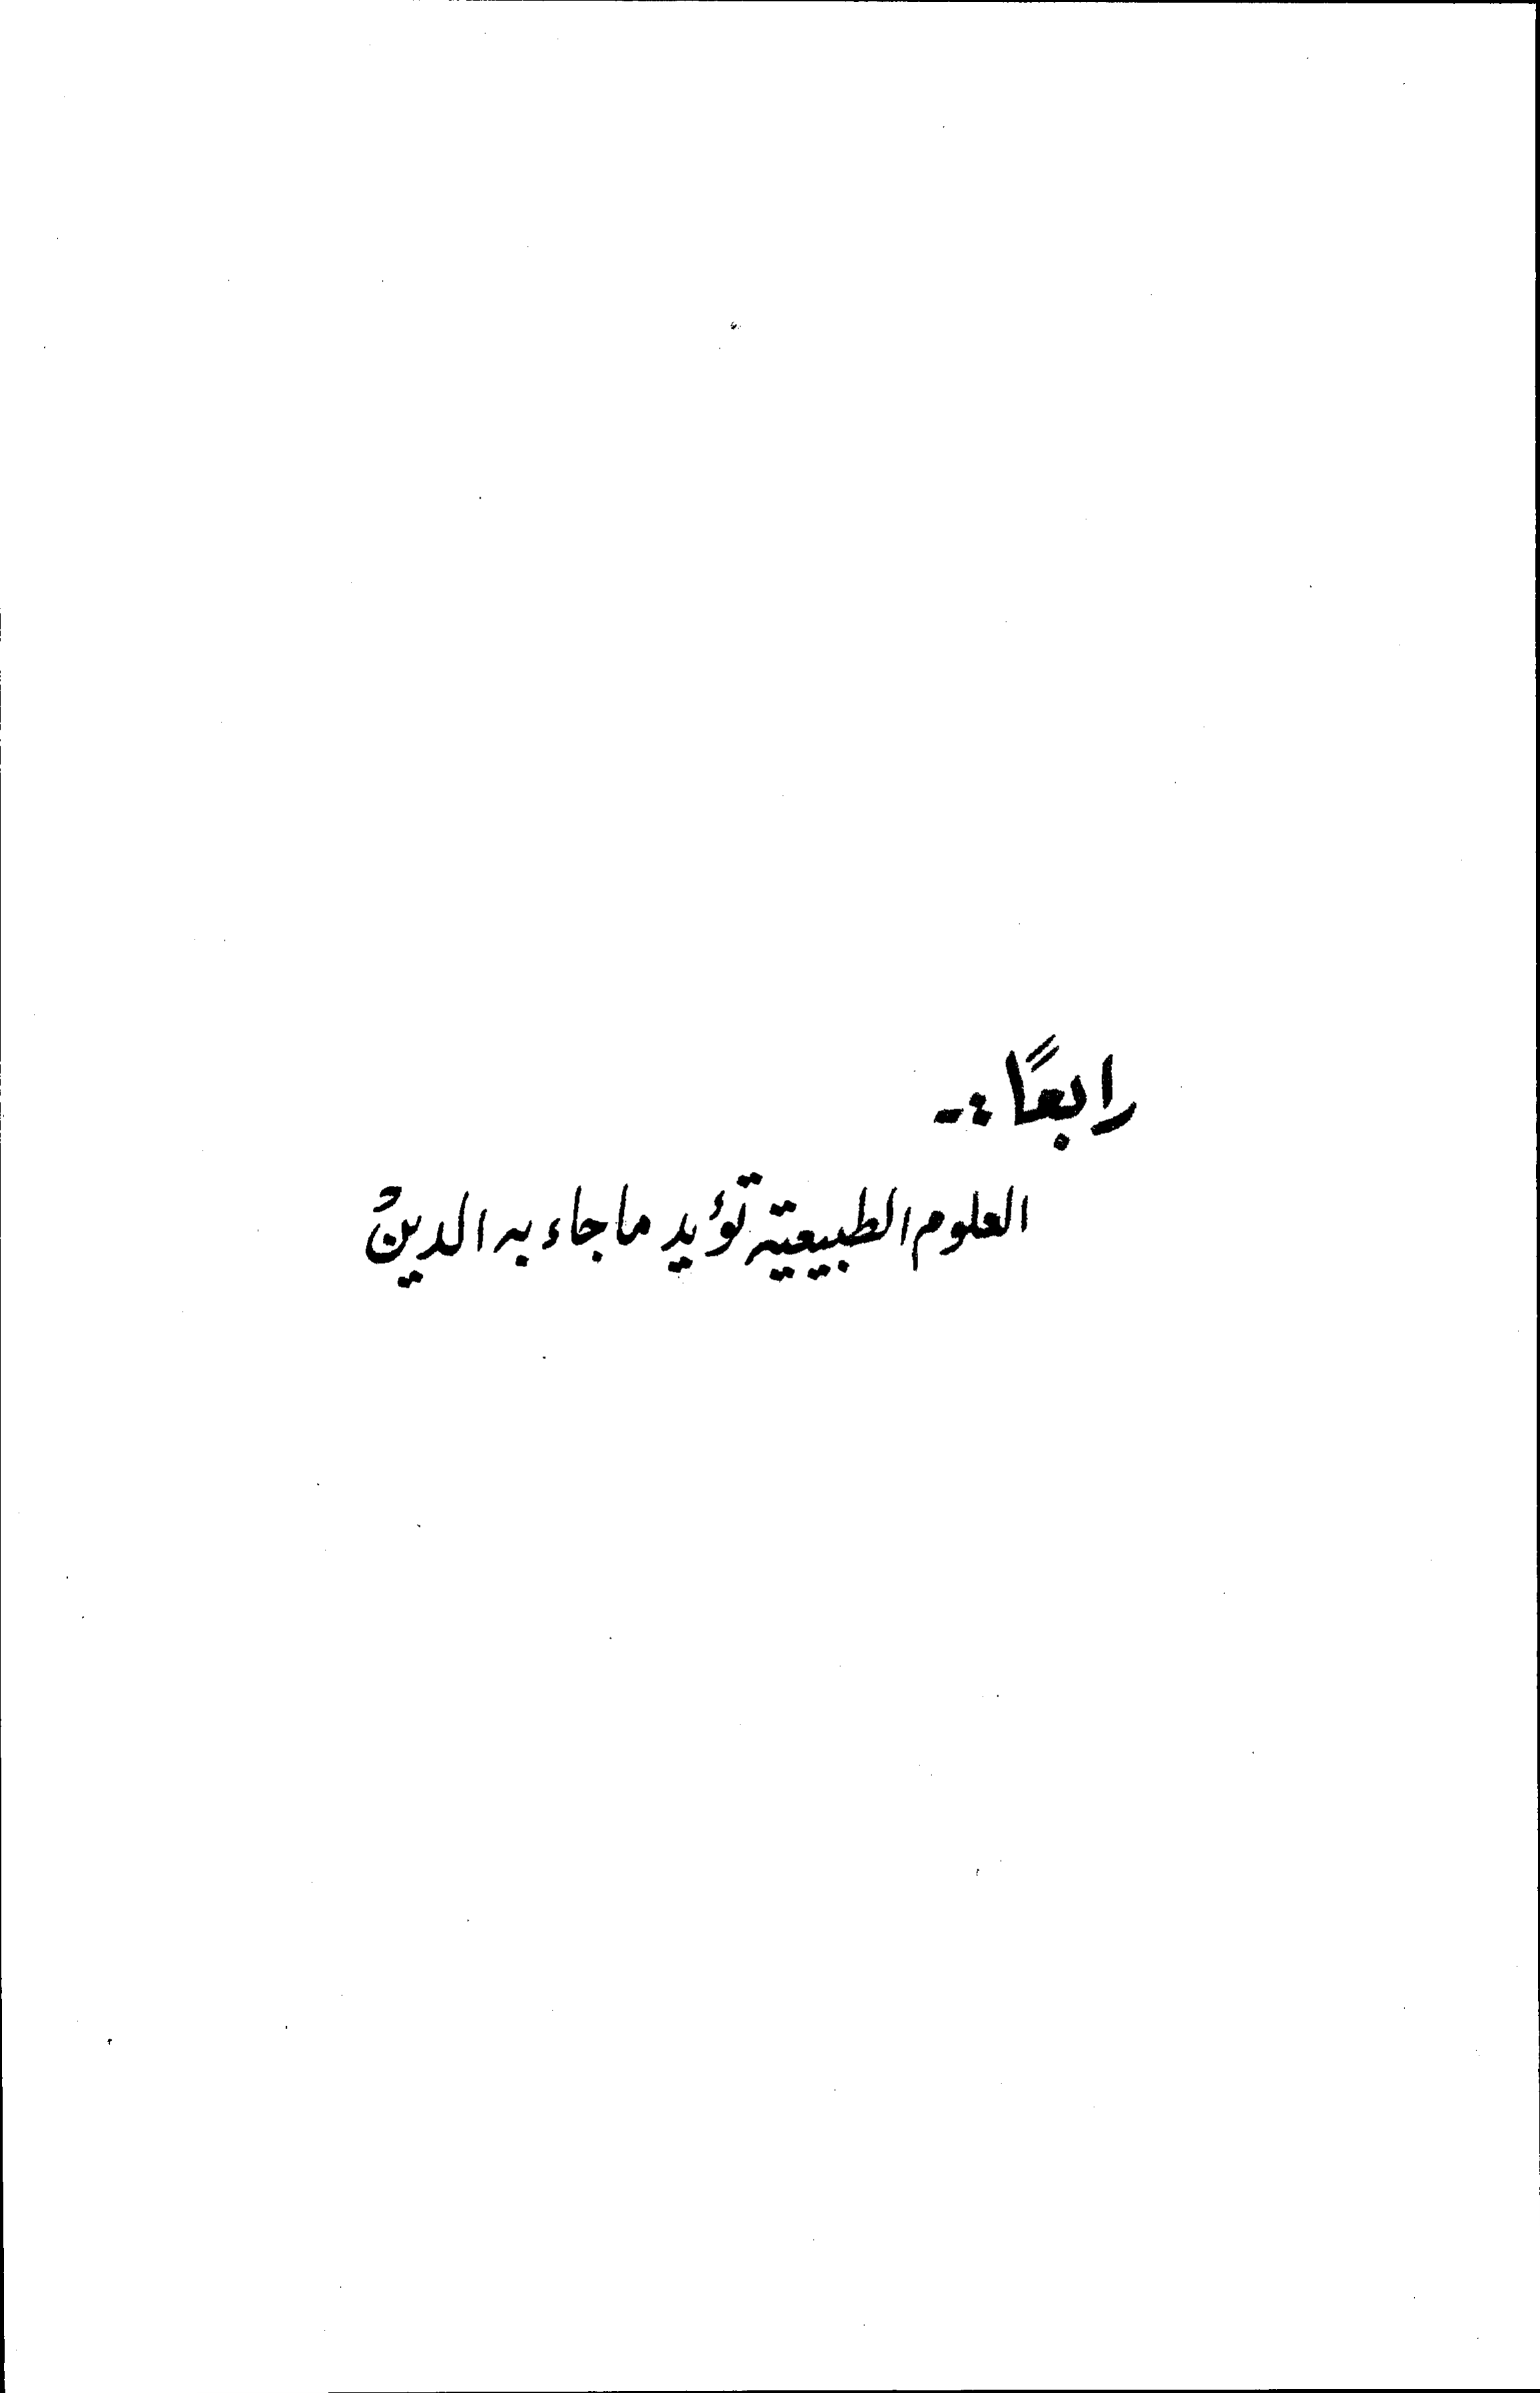 رابعًا :-
العلوم الطبيعية تؤيد ما جاء به الدينُ